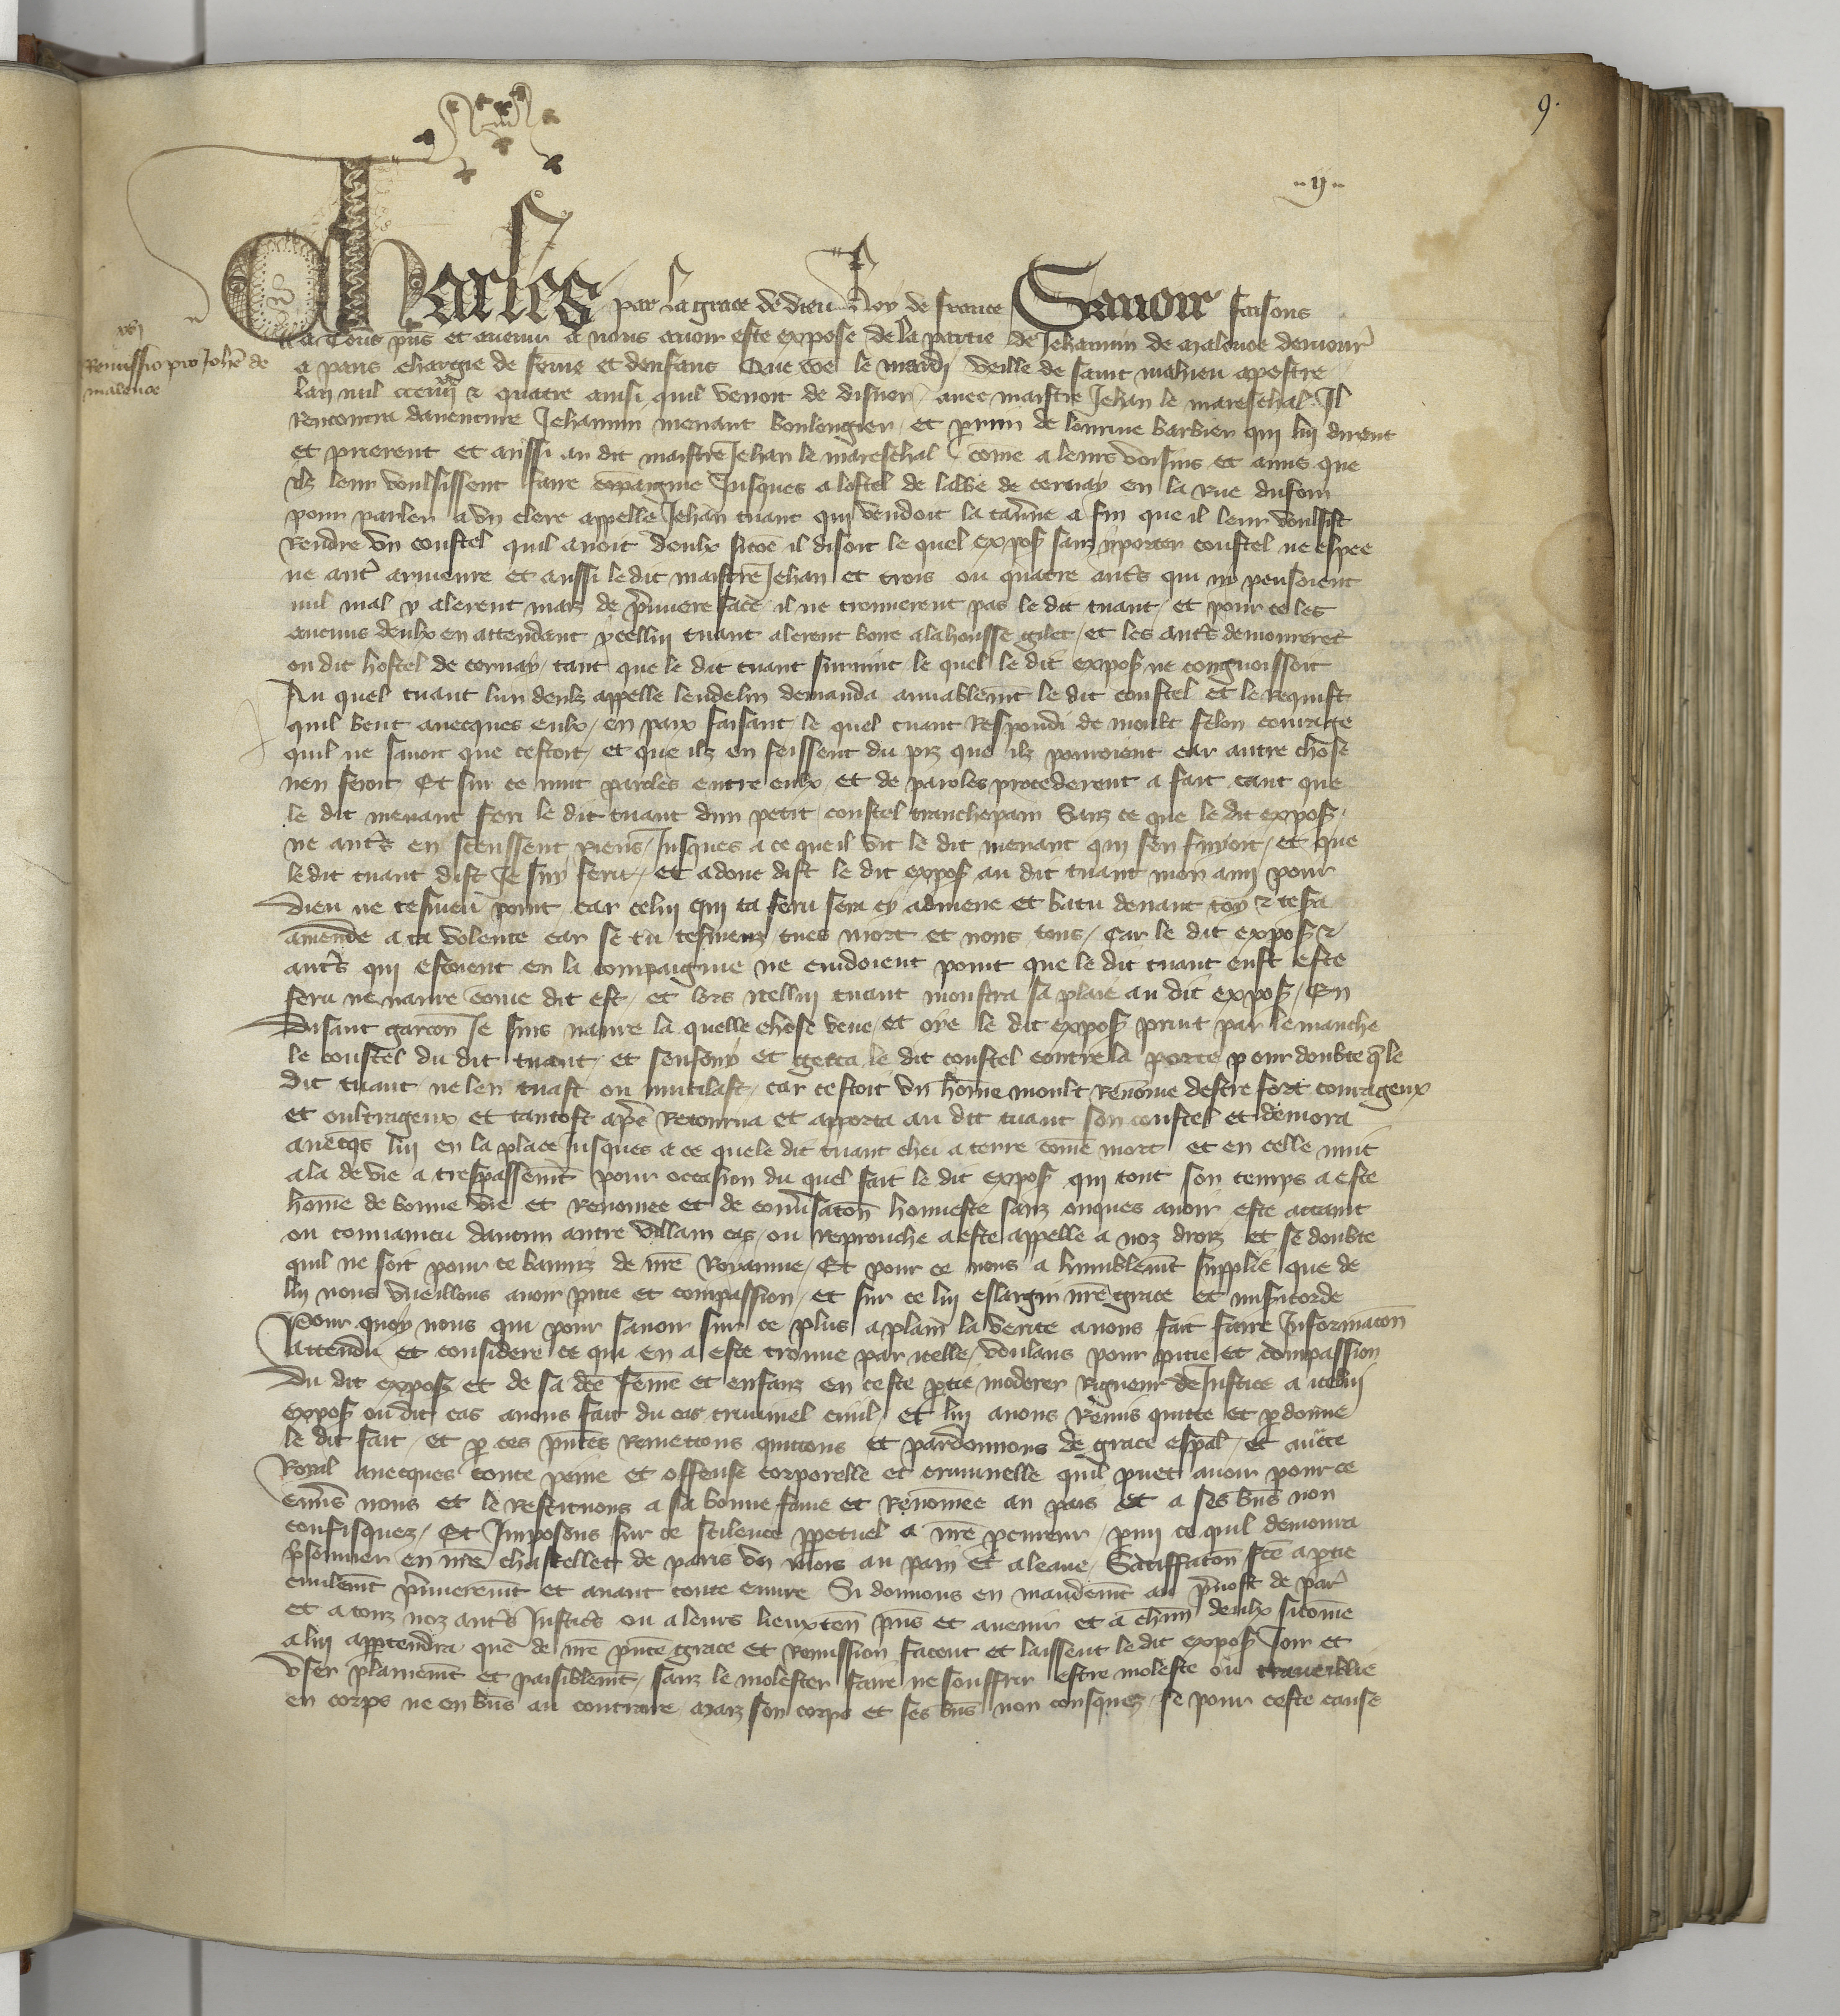 9.
ij
Charles par la grace de dieu Roy de france Savoir faisons
xvj
Remissio pro Joh'e de
malenoe
A Tous p'ns et avenir a nous avoir este expose de la partie de Jehannin de malenoe demour'
a paris chargie de feme et denfans Que come le mardi veille de saint mahieu apostre
lan mil ccc iiijxx & quatre ainsi quil venoit de disner avec maistre Jehan le mareschal Il
Rencontra daventure Jehannin menant boulengier et perrin de barbier qui lui dirent
et prierent et aussi au dit maistre Jehan le mareschal come a leurs voisins et amis que
ilz leur voulsissent faire compaignie Jusques a lostel de labbe de cernay en la Rue du foin
pour parler a un clerc appelle Jehan tuant qui vendoit la taverne a fin que il leur voulsist
Rendre un coustel quil avoit deulx sicoe il disoit le quel expos' sanz y porter coustel ne espee
ne aut' armeure et aussi le dit maistre Jehan et trois ou quatre aut's qui ny pensoient
nul mal y alerent maiz de p'miere face il ne trouverent pas le dit tuant et pour ce les
aucuns deulx en attendant ycellui tuant alerent boire a la housse gilet et les aut's demourere't
ou dit hostel de cernay tant que le dit tuant survint le quel le dit expos' ne congnoissoit
Au quel tuant lun deulz appelle demanda amiablem't le dit coustel et le Requist
quil beut avecques eulx en paix faisant le quel tuant Respondi de moult felon courage
quil ne savoit que cestoit et que ilz en feissent du piz que ilz pourroient car autre chose
nen feroit Et sur ce murent paroles entre eulx et de paroles procederent a fait tant que
le dit menant feri le dit tuant dun petit coustel tranchepain Sanz ce que le dit expos'
ne aut's en sceussent riens Jusques a ce que il vit le dit menant qui sen fuyoit et que
le dit tuant dist Je suy feru et adonc dist le dit expos' au dit tuant mon ami pour
dieu ne tesmeu point car celui qui ta feru sera cy admene et batu devant toy & tesra
amende a ta volente car se tu tesmeuz tues mort et nous tous Car le dit expos' &
aut's qui estoient en la compaignie ne cuidoient point que le dit tuant eust este
feru ne navre come dit est et lors icellui tuant monstra sa plaie au dit expos' En
disant garcon Je suis navre la quelle chose veue et oye le dit expos' print par le manche
le coustel du dit tuant et senfouy et getta le dit coustel contre la porte pour doubte q' le
dit tuant ne len tuast ou mutilast car cestoit un home moult Renome destre fort courageux
et oultrageux et tantost ap's Retourna et apporta au dit tuant son coustel et demora
avecqs lui en la place Jusques a ce que le dit tuant chei a terre come mort et en celle nuit
ala de vie a trespassem't pour occasion du quel fait le dit expos' qui tout son temps a este
home de bonne vie et Renomee et de conv'sacon honneste sanz onques avoir este attaint
ou convaincu daucun autre villain cas ou reprouche a este appelle a noz droiz et se doubte
quil ne soit pour ce banniz de n're Royaume Et pour ce nous a humblem't supplie que de
lui nous vueillons avoir pitie et compassion et sur ce lui eslargir n're grace et mis'icorde
Pour quoy nous qui pour savoir sur ce plus aplain la verite avons fait faire Informacon
attendu et considere ce qui en a este trouve par icelle voulans pour pitie et compassion
du dit expos' et de sa d'ce feme et enfanz en ceste p'tie moderer Rigueur de Justice a icellui
expos' ou dit cas avons fait du cas criminel civil et lui avons Remis quitte et p'donne
le dit fait et p' ces p'ntes Remettons quittons et pardonnons de grace esp'al et auct'e
Royal avecques toute peine et offense corporelle et criminelle quil puet avoir pour ce
env's nous et le Restituons a sa bonne fame et Renomee au pais et a ses b'ns non
confisquez Et Imposons sur ce scilence p'petuel a n're p'cureur p'mi ce quil demourra
p'sonnier en n're chastellet de paris un mois au pain et a leaue Satiffacon f'ce a p'tie
civilem't p'mierem't et avant toute euvre Si donnons en mandem't au p'vost de par'
et a touz noz aut's Justic's ou a leurs lieuxten' p'ns et avenir et a ch'un deulx sicome
a lui app'tendra que de n're p'nte grace et Remission facent et laissent le dit expos' Joir et
user plainem't et paisiblem't sanz le molester faire ne souffrir estre moleste ou traveillie
en corps ne en b'ns au contraire maiz son corps et ses b'ns non confisquez se pour ceste cause